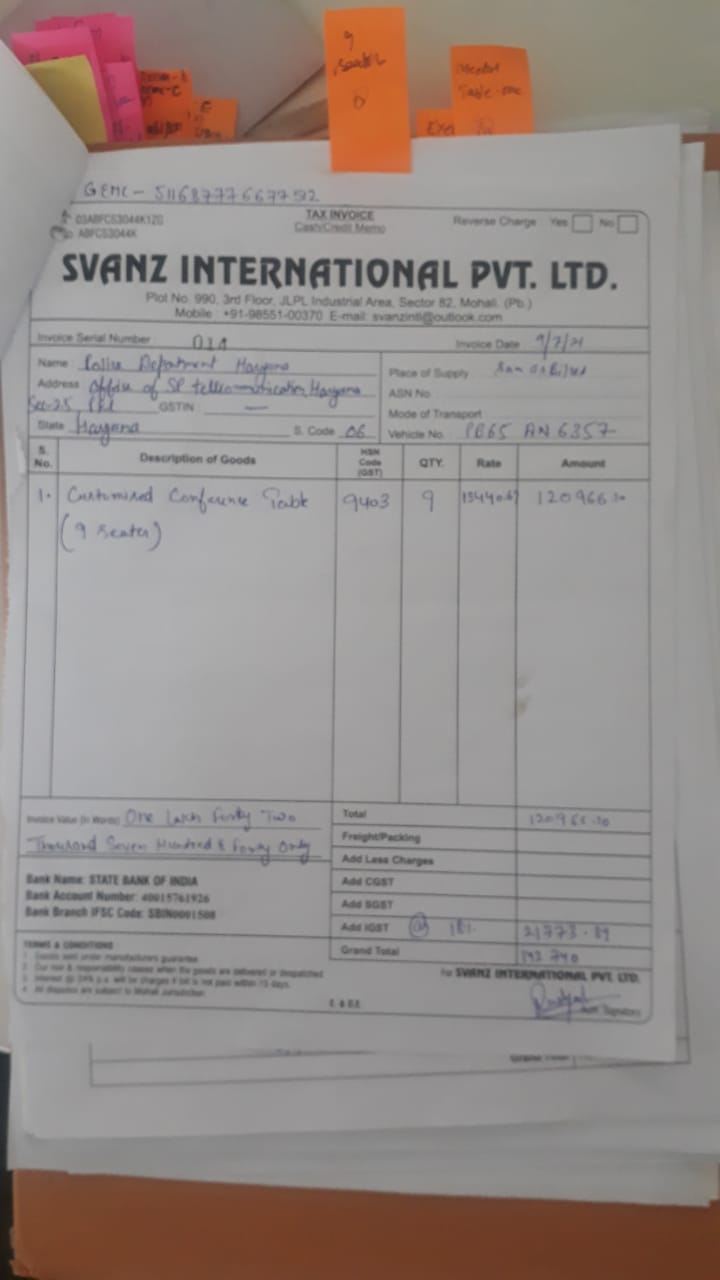 9
Seater
Table-one
GEMC-511687776677592
03ABFCS3044K1ZG
ABFCS3044K
TAX INVOICE
Cash/Credit Memo
Reverse Charge Yes No
SVANZ INTERNATIONAL PVT. LTD.
Plot No. 990, 3rd Floor, JLPL Industrial Area, Sector 82, Mohali. (Pb.)
Mobile : +91-98551-00370 E-mail: svanzintl@outlook.com
Invoice Serial Number 014
Invoice Date 9/7/21
Name : Police Department Haryana
Address Office of SP telecommunication, Haryana
Sec-25 PKL GSTIN : —
State Haryana S. Code 06
Place of Supply
ASN No
Mode of Transport
Vehicle No. PB65 AN 6357
S. No. Description of Goods HSN Code (GST) QTY. Rate Amount
1. Customised Conference Table 9403 9 13440.67 120966.10
(9 Seater)
Invoice Value (In Words) One Lakh Forty Two
Thousand Seven Hundred & Forty Only
Total 120966.10
Freight/Packing
Add Less Charges
Add CGST
Add SGST
Add IGST @ 18%. 21773.89
Grand Total 142740
Bank Name: STATE BANK OF INDIA
Bank Account Number: 40015761926
Bank Branch IFSC Code: SBIN0001508
TERMS & CONDITIONS
1. Goods sold under manufacturers guarantee.
2. Our risk & responsibility ceases when the goods are delivered or despatched
3. Interest @ 24% p.a. will be charges if bill is not paid within 15 days.
4. All disputes are subject to Mohali Jurisdiction.
E. & O.E.
For SVANZ INTERNATIONAL PVT. LTD.
Auth. Signatory